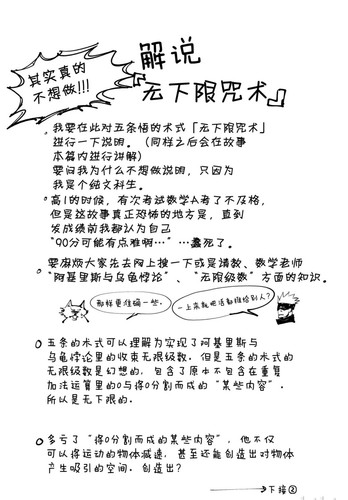 其实真的
不想做!!!
解说
『无下限咒术』
我要在此对五条悟的术式「无下限咒术」
进行一下说明。（同样之后会在故事
本篇内进行讲解）
要问我为什么不想做说明，只因为
我是个纯文科生。
高1的时候，有次考试数学A考了个不及格，
但是这故事真正恐怖的地方是，直到
发成绩前我都认为自己
“90分可能有点难啊…”…蠢死了。
要麻烦大家先去网上搜一下或是请教、数学老师
“阿基里斯与乌龟悖论”、“无限级数”方面的知识。
那样更准确一些。
一上来就把话都推给别人？
五条的术式可以理解为实现了阿基里斯与
乌龟悖论里的收束无限级数。但是五条的术式的
无限级数是幻想的，包含了原本不包含在重复
加法运算里的0与将0分割而成的“某些内容”。
所以是无下限的。
多亏了“将0分割而成的某些内容”，他不仅
可以将运动的物体减慢，甚至还能创造出对物体
产生吸引的空间。创造出？
下接②